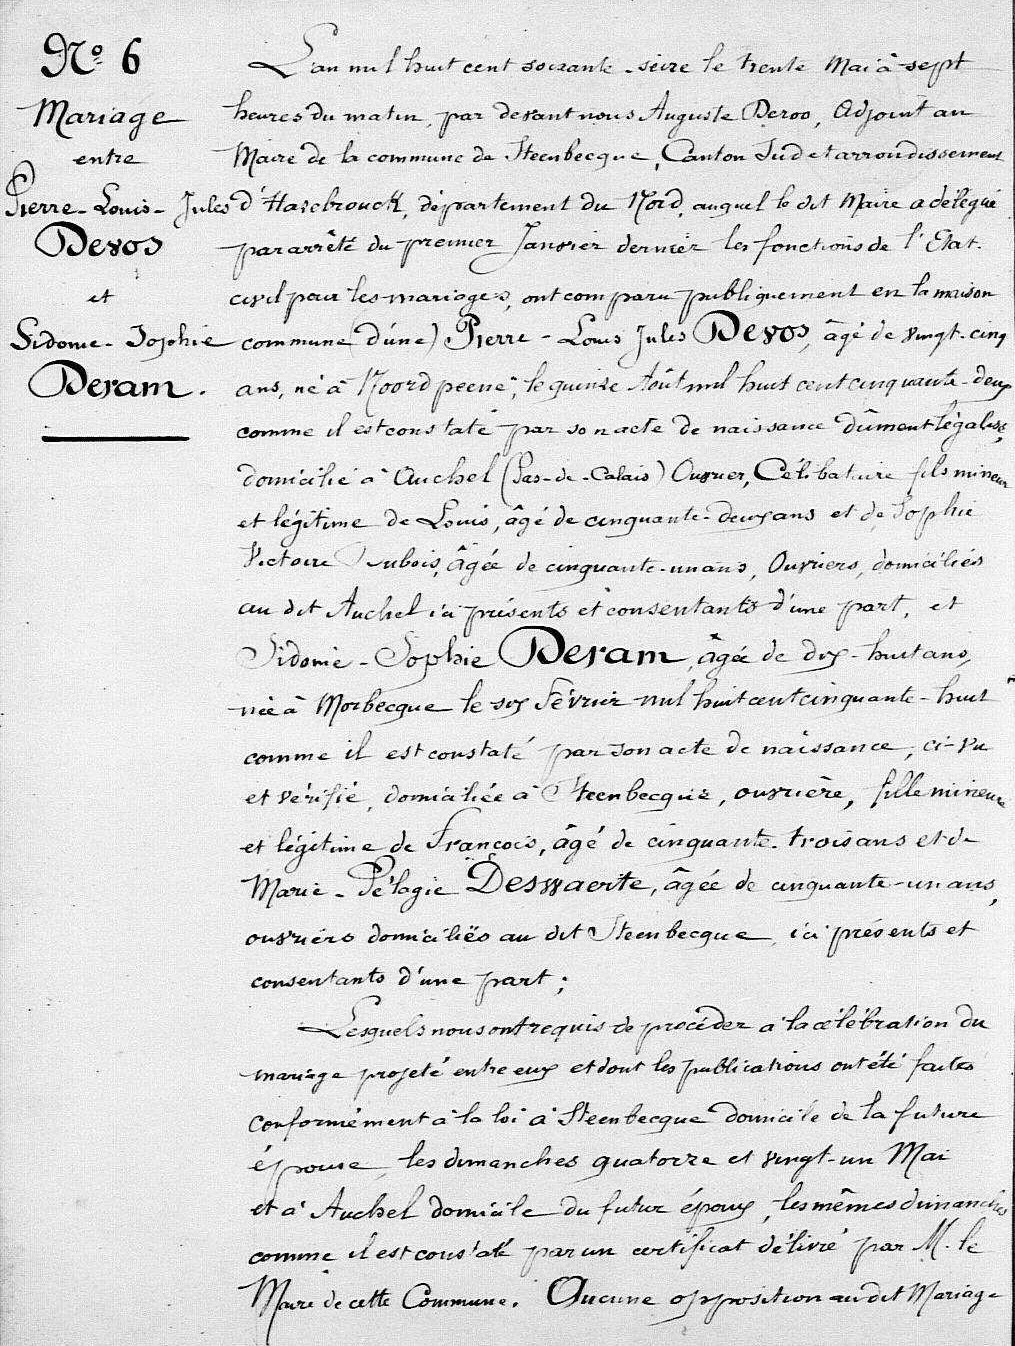 No 6
Mariage
entre
Pierre-Louis-Jules
Devos
et
Sidonie-Sophie
Deram.
L'an mil huit cent soixante-seize le trente Mai à sept
heures du matin, par devant nous Auguste Deroo, Adjoint au
Maire de la commune de Steenbecque, Canton Sud et arrondissement
d'Hazebrouck, département du Nord, auquel le dit Maire a délégué
par arrêté du premier Janvier dernier les fonctions de l'Etat-
civil pour les mariages, ont comparu publiquement en la maison
commune (d'une) Pierre-Louis Jules Devos, âgé de vingt-cinq
ans, né à Noordpeene, le quinze Août mil huit cent cinquante-deux
comme il est constaté par son acte de naissance dûment légalisé,
domicilié à Auchel (Pas-de-Calais) Ouvrier, Célibataire fils mineur
et légitime de Louis, âgé de cinquante-deux ans et de Sophie
Victoire Dubois, âgée de cinquante-un ans, Ouvriers, domiciliés
au dit Auchel ici présents et consentants d'une part, et
Sidonie-Sophie Deram, âgée de dix-huit ans,
née à Morbecque le six Février mil huit cent cinquante-huit
comme il est constaté par son acte de naissance, ci-vu
et vérifié, domiciliée à Steenbecque, ouvrière, fille mineure
et légitime de François, âgé de cinquante-trois ans et de
Marie-Pélagie Deswaerte, âgée de cinquante-un ans,
ouvriers domiciliés au dit Steenbecque, ici présents et
consentants d'une part;
Lesquels nous ont requis de procéder à la célébration du
mariage projeté entre eux et dont les publications ont été faites
conformément à la loi à Steenbecque domicile de la future
épouse, les dimanches quatorze et vingt-un Mai
et à Auchel domicile du futur époux, les mêmes dimanches
comme il est constaté par un certificat délivré par M. le
Maire de cette Commune. Aucune opposition au dit Mariage